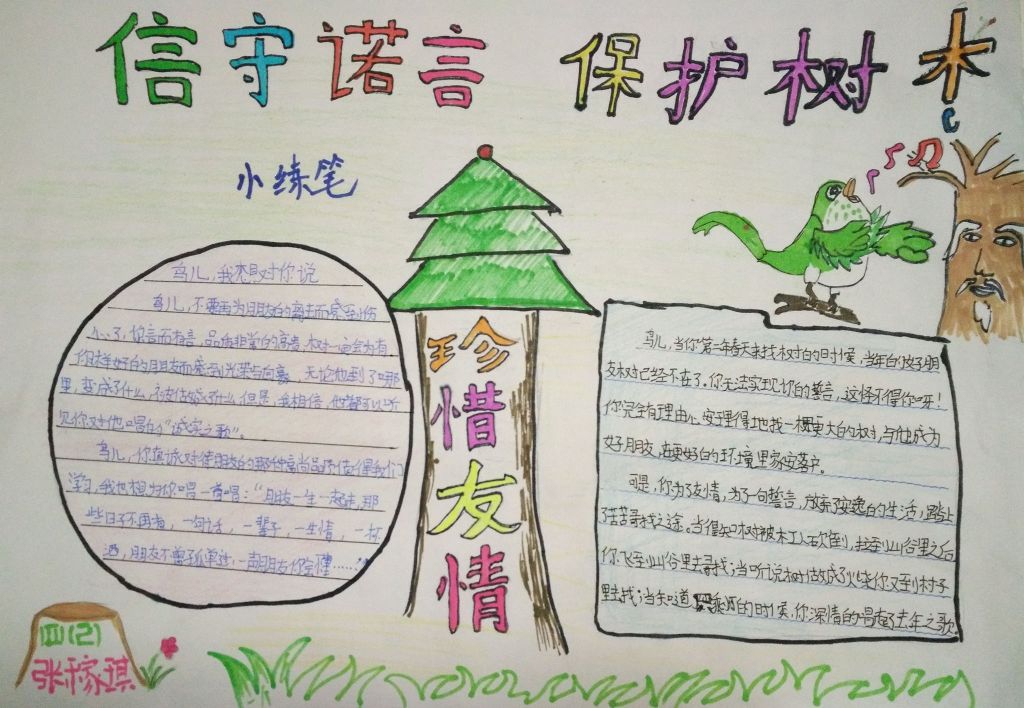 信守诺言 保护树木
小练笔
鸟儿，我想对你说
鸟儿，不要再为朋友的离去而感到伤
心了，你言而有信，品质非常的高贵，树一定会为有
你这样好的朋友而感到光荣与自豪，无论他到了哪
里，变成了什么，被做成了什么，但是，我相信，他都可以听
见你对他唱的“诚实之歌”。
鸟儿，你真诚对待朋友的那种高尚品质值得我们
学习，我也想为你唱一首唱：“朋友一生一起走，那
些日子不再有，一句话，一辈子，一生情，一杯
酒，朋友不曾孤单过，一声朋友你会懂……”
珍惜友情
鸟儿，当你第二年春天来找树的时候，当年的好朋
友树已经不在了，你无法实现切的誓言，这怪不得你呀！
你完全有理由心安理得地找一棵更大的树，与他成为
好朋友，在更好的环境里安家落户。
可是，你为了友情，为了一句誓言，放弃了安逸的生活，踏上
了苦苦寻找之途，当得知树被木工砍倒，拉到山谷里之后
你飞到山谷里去寻找；当听说树做成了火柴你又到村子
里去找；当知道的时候，你深情的唱起了去年之歌
四(2)
张稼琪